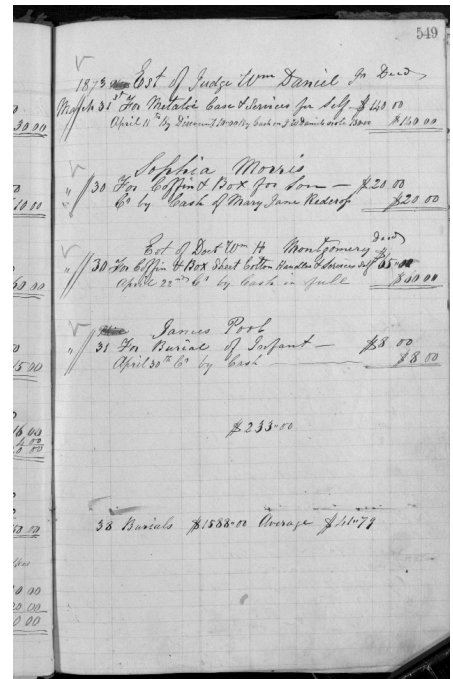 549
1873 Est of Judge Wm Daniel Jr Decd
March 31st For Metalic Case & Services for Self $140 00
April 11th By Discount 10.00 By Cash on J W Daniels note $140 00
Sophia Morris
" 30 For Coffin & Box for Son — $20 00
Cr by Cash of Mary Jane $20 00
Est of Doct Wm H Montgomery Decd
" 30 For Coffin & Box Shirt Cotton Handles & Services Self $65 00
April 22nd Cr by Cash in full
James Pool
" 31 For Burial of Infant — $8 00
April 30th Cr by Cash — $8 00
$233.00
38 Burials $1588.00 Average $41.79
30 00
10 00
60 00
15 00
16 00
4 00
0 00
50 00
0 00
20 00
0 00